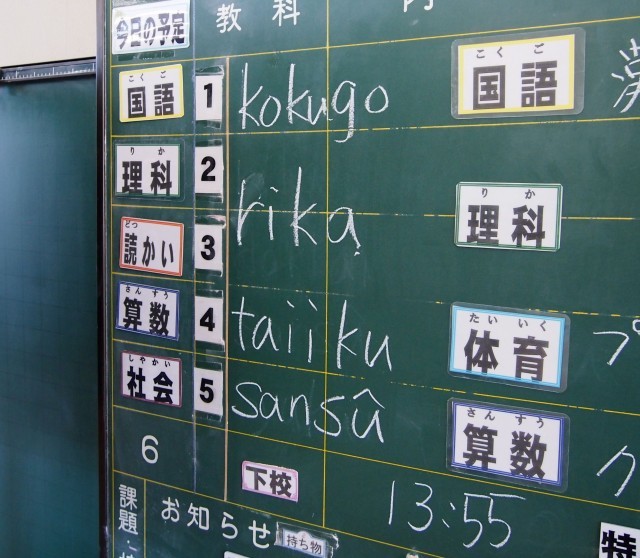 今日の予定 教科 内
こくご
国語 1 kokugo こくご 国語 夢
りか
理科 2 rika りか 理科
どっ
読かい 3
さんすう
算数 4 taiiku たいいく 体育 プ
しゃかい
社会 5 sansû さんすう 算数 ク
6 下校 13:55
課題・ お知らせ 持ち物 特